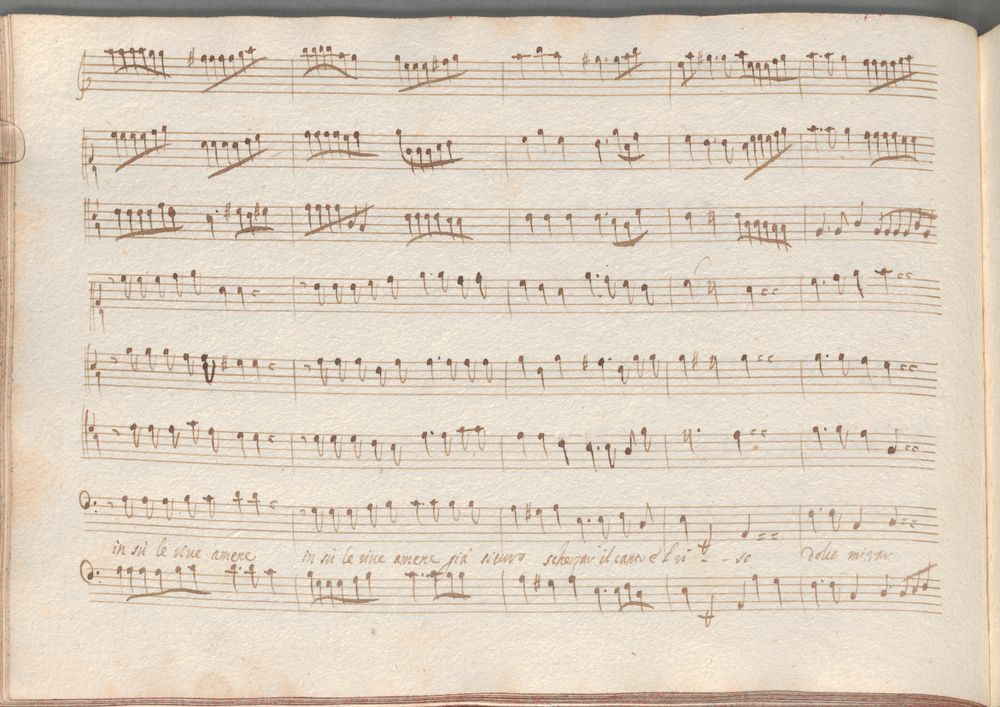 in sù le rive amene in sù le rive amene già sicuro scherzar il canto e'l ri - - so dolce mirar